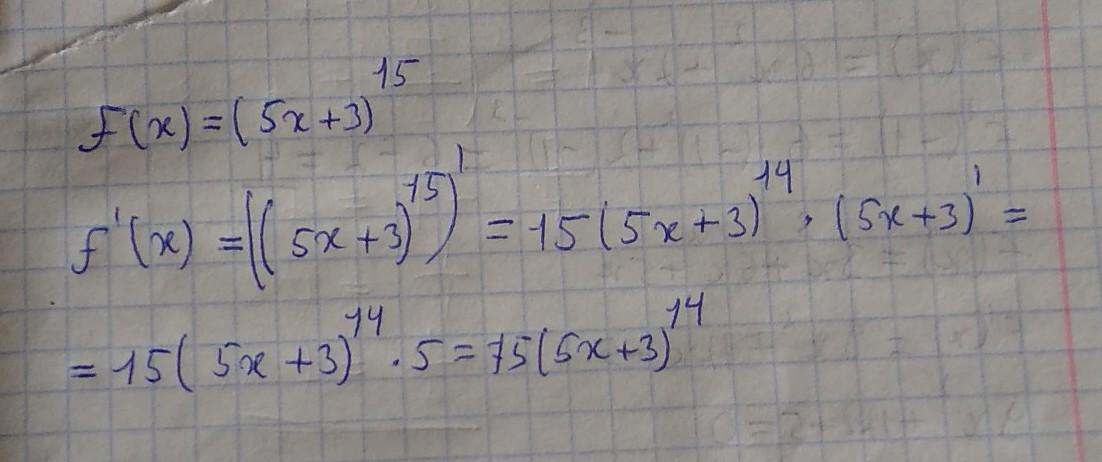 f(x) = (5x+3)^15
f'(x) = ((5x+3)^15)' = 15(5x+3)^14 · (5x+3)' =
= 15(5x+3)^14 · 5 = 75(5x+3)^14